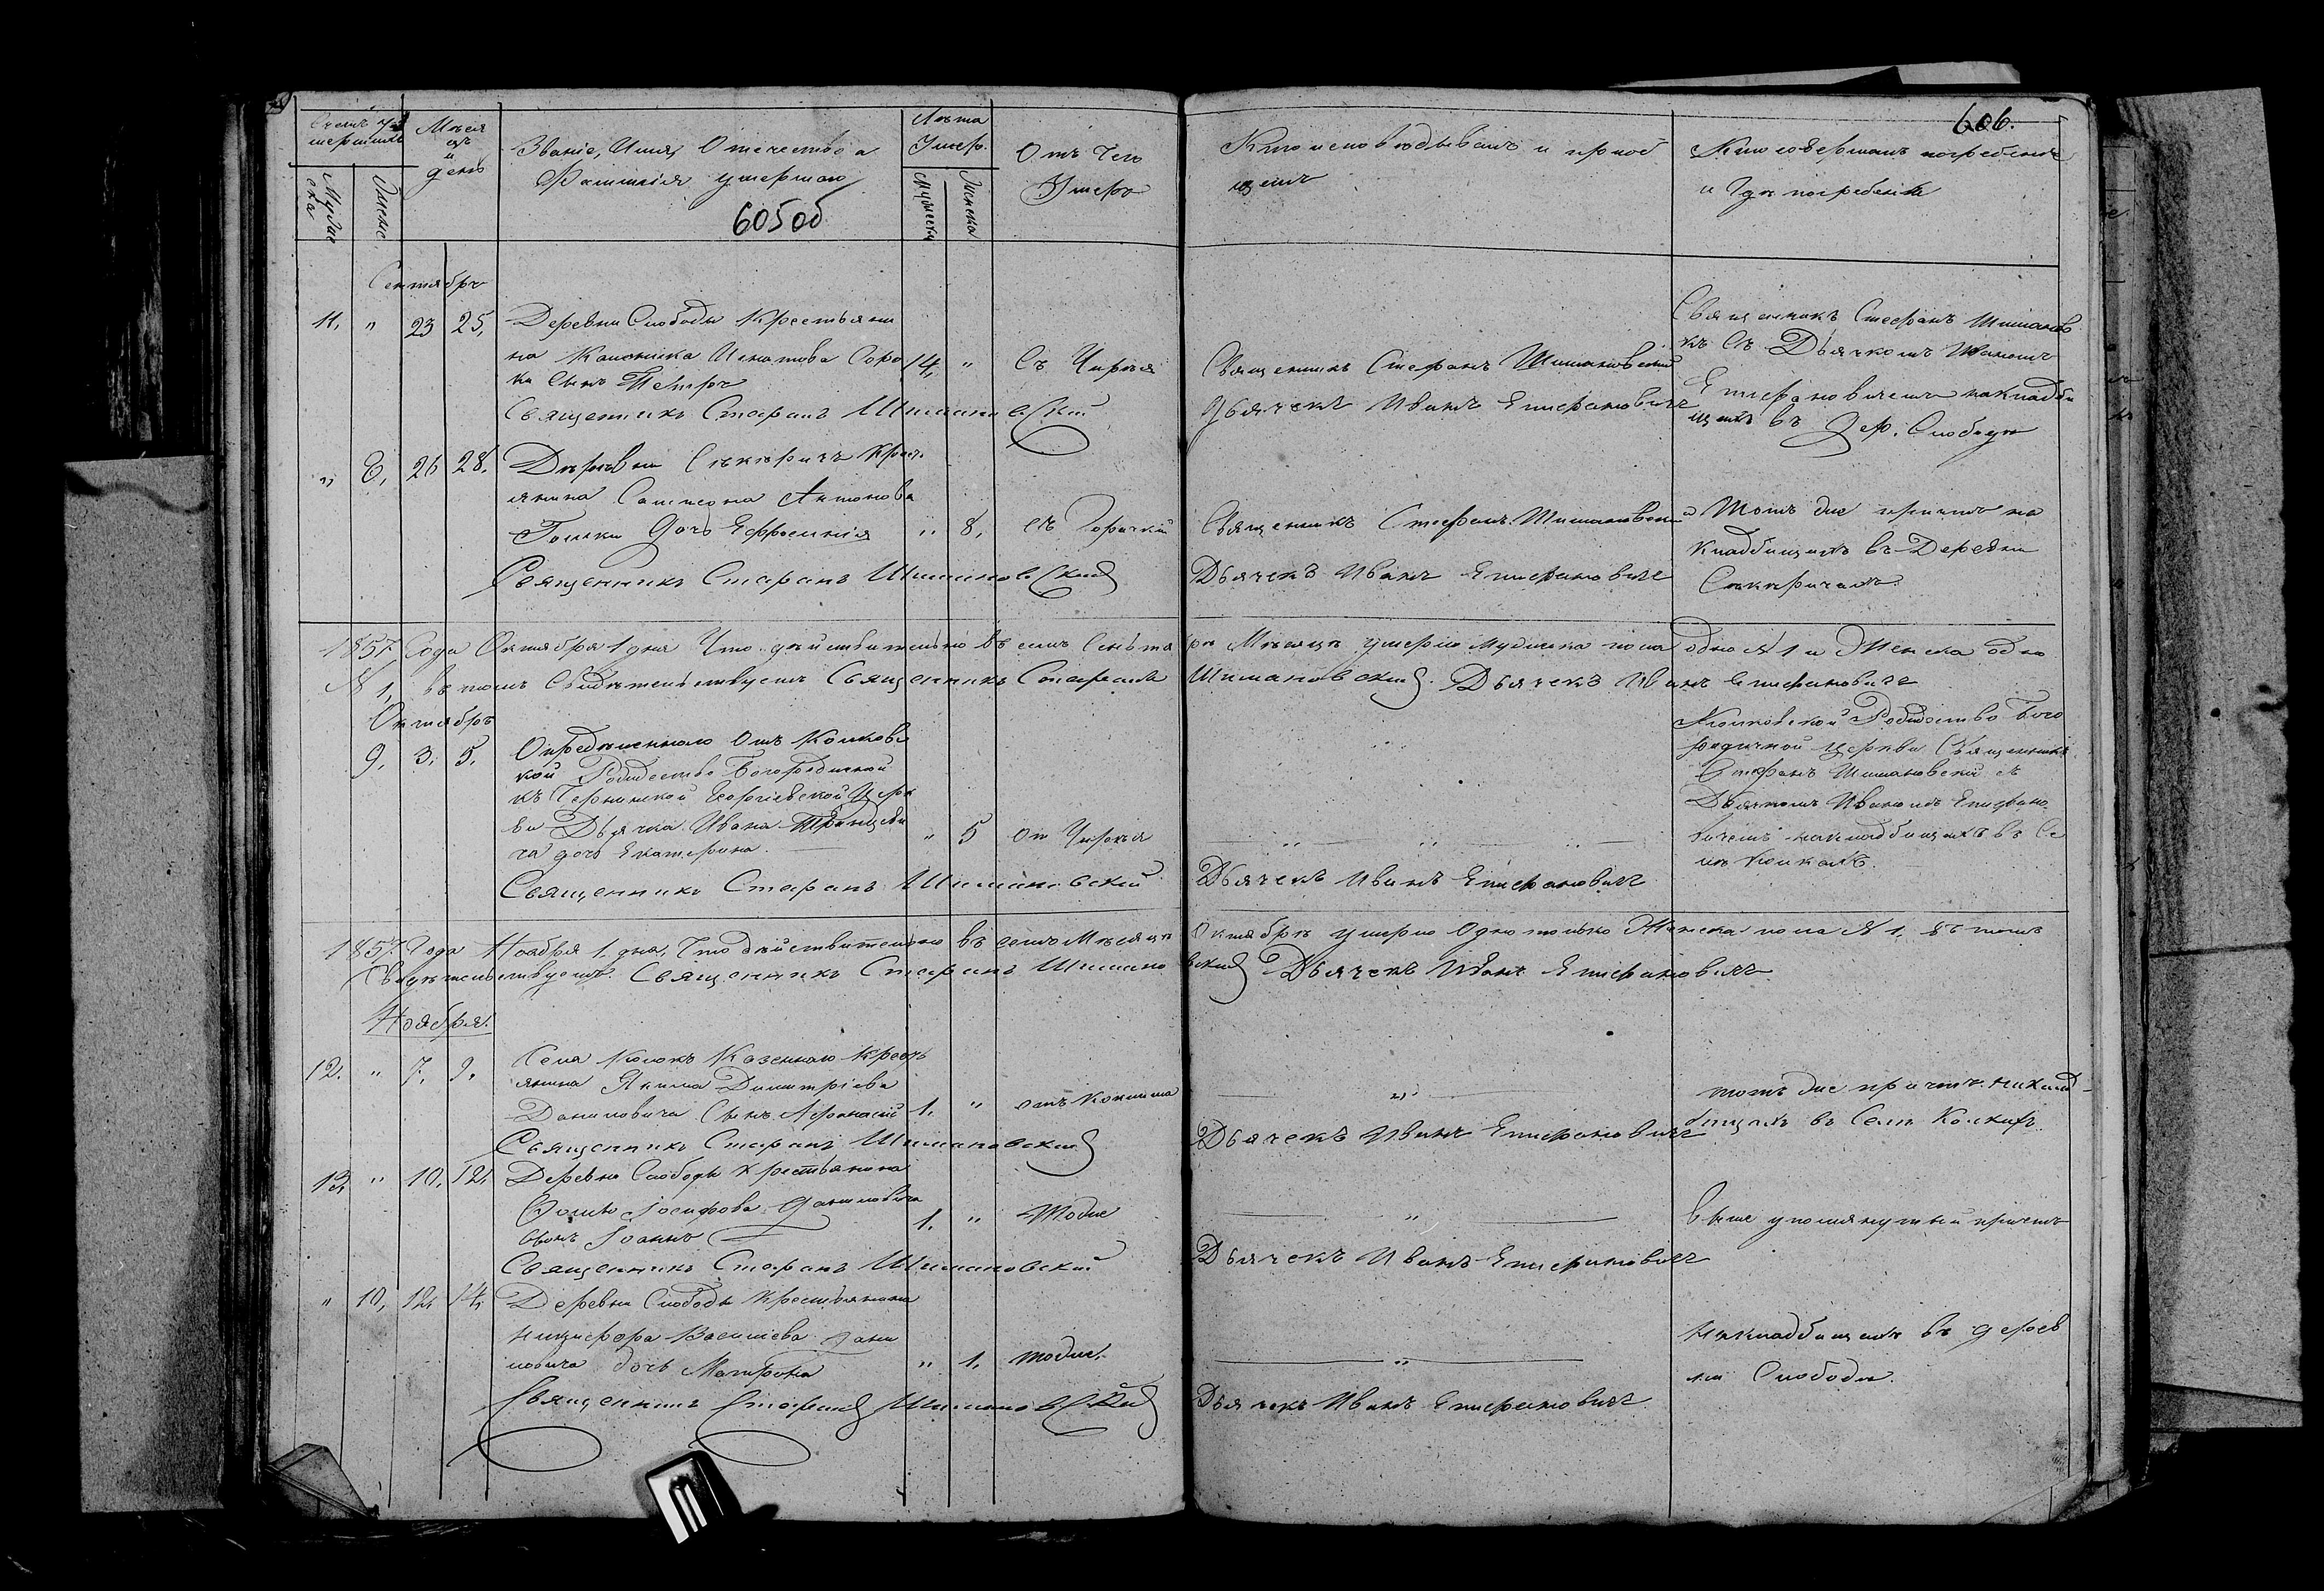 606.
Счетъ у-
мершихъ
Мѣся
цъ
и
день
Званіе, Имя, Отечество и
Фамилія умершаго
605об
Лѣта
Умер.
Отъ чего
Умеръ
Кто исповѣдывалъ и приоб
щалъ
Кто совершалъ погребеніе
и гдѣ погребены
Мужес
ка
Женс.
Мужеска
Женска
Сентябрь
11. " 23 25. Деревни Слободы Крестьяни
на Игнатова Соро
ки Сынъ Петръ
14. "
Священникъ Стефанъ Шимановскій
Священникъ Стефанъ Шимановскій
Дьячекъ Иванъ Епифановичъ
Священникъ Стефанъ Шимановс
кій съ Дьячкомъ Иваномъ
Епифановичемъ на кладби
щахъ въ Дер. Слободѣ
" 8, 26 28. Деревни Секиричъ Крест.
янина Самсона Антонова
дочь Ефросинія " 8. отъ Горячки
Священникъ Стефанъ Шимановскій
Священникъ Стефанъ Шимановскій
Дьячекъ Иванъ Епифановичъ
Тотъ же причтъ на
кладбищахъ въ Деревни
Секиричахъ.
1857. Года Октября 1 дня Что дѣйствительно въ семъ Сентябрѣ Мѣсяцѣ умерло Мужеска пола одно № 1 и Женска одно
№ 1, въ томъ Свидѣтельствуемъ Священникъ Стефанъ Шимановскій. Дьячекъ Иванъ Епифановичъ
Октябрь
9. 3. 5. Опредѣленнаго отъ Колковс
кой Рождество Богородичной
къ Георгіевской Церк
ви Дьячка Ивана
ча дочь Екатерина. " 5
Священникъ Стефанъ Шимановскій
Дьячекъ Иванъ Епифановичъ
Колковской Рождество Бого
родичной церкви Священникъ
Стефанъ Шимановскій съ
Дьячкомъ Иваномъ Епифано
вичемъ на кладбищахъ въ Се
лѣ Колкахъ.
1857. Года Ноября 1. дня, Что дѣйствительно въ семъ Мѣсяцѣ Октябрѣ умерло Одно только Женска пола № 1. въ томъ
Свидѣтельствуемъ. Священникъ Стефанъ Шимановскій Дьячекъ Иванъ Епифановичъ
Ноября.
12. " 7. 9. Села Колокъ Казеннаго Кресть
янина Якима Димитріева
Даниловича Сынъ Афанасій 1. " отъ Коклюша
Священникъ Стефанъ Шимановскій
Дьячекъ Иванъ Епифановичъ
тотъ же причтъ на клад-
бищахъ въ Селѣ Колкахъ.
13. " 10. 12. Деревни Слободы Крестьянина
Іосифова Даниловича
сынъ Іоаннъ 1. " Тоже
Священникъ Стефанъ Шимановскій
Дьячекъ Иванъ Епифановичъ
выше упомянутый причтъ
" 10, 12. 14. Деревни Слободы Крестьянина
Никифора Василіева Дани
ловича дочь Матрона " 1. тоже.
Священникъ Стефанъ Шимановскій
Дьячекъ Иванъ Епифановичъ
на кладбищахъ въ дерев
ни Слободы.